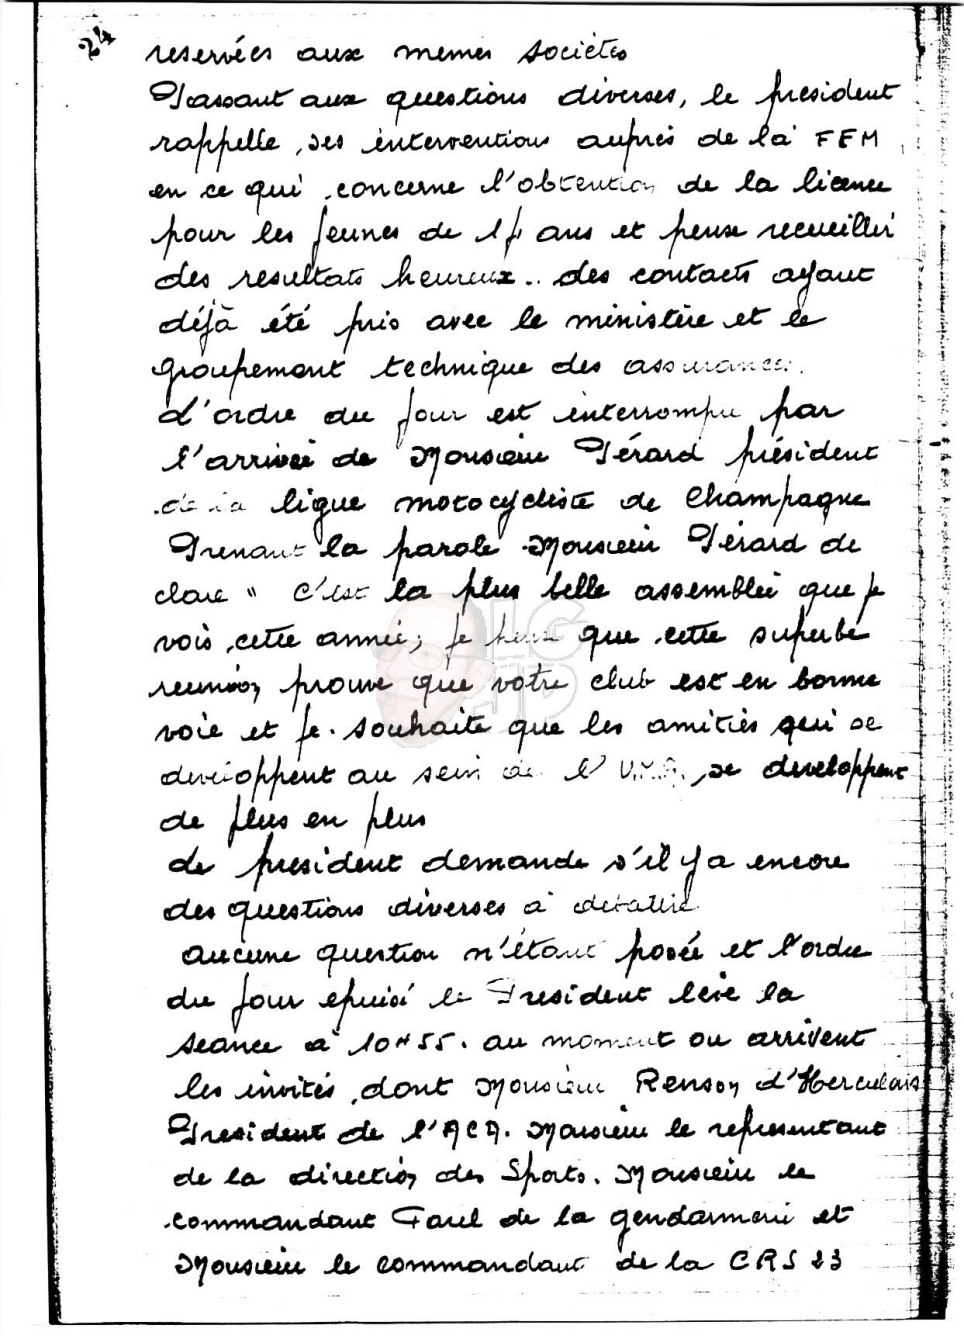 24
reservées aux memes sociétés
Passant aux questions diverses, le president
rappelle, ses interventions auprès de la FFM,
en ce qui concerne l'obtention de la licence
pour les jeunes de 14 ans et pense recueillir
des resultats heureux.. des contacts ayant
déjà été pris avec le ministère et le
groupement technique des assurances.
L'ordre du jour est interrompu par
l'arrivée de Monsieur Pérard président
de la ligue motocycliste de Champagne
Prenant la parole Monsieur Pérard de
clare " C'est la plus belle assemblée que je
vois cette année, je pense que cette superbe
reunion prouve que votre club est en bonne
voie et je souhaite que les amitiés qui se
developpent au sein de l'U.M.A. se developpent
de plus en plus
Le president demande s'il y a encore
des questions diverses à debattre
aucune question n'étant posée et l'ordre
du jour epuisé le President leve la
seance à 10H55. au moment ou arrivent
les invités, dont Monsieur Renson d'Herculais
President de l'ACA. Monsieur le representant
de la direction des Sports. Monsieur le
commandant Paul de la gendarmerie et
Monsieur le commandant de la CRS 23